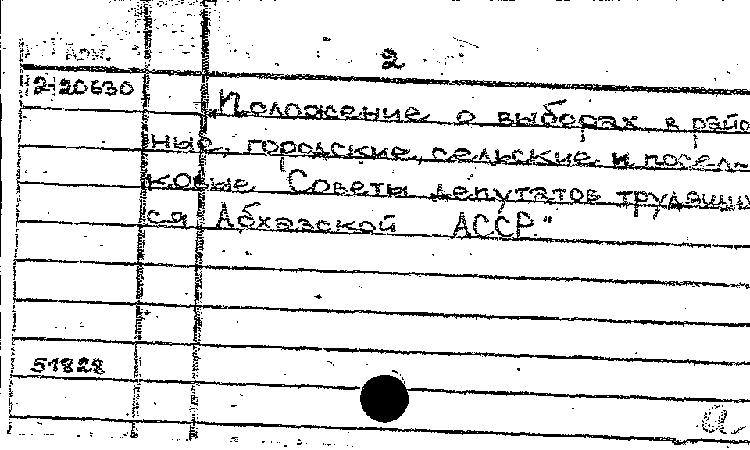 2
2-20630
„Положение о выборах в райо
ные, городские, сельские и посел-
ковые Советы депутатов трудящих
ся Абхазской АССР."
51828
а